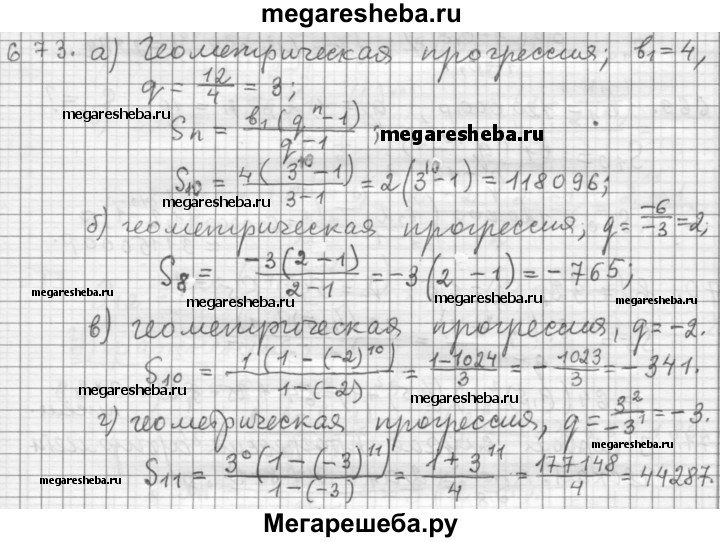 megaresheba.ru
673. а) Геометрическая прогрессия; b₁ = 4,
q = 12/4 = 3;
megaresheba.ru
Sn = b₁(qⁿ - 1)/(q - 1);
megaresheba.ru
S₁₀ = 4(3¹⁰ - 1)/(3 - 1) = 2(3¹⁰ - 1) = 118096;
megaresheba.ru megaresheba.ru
б) геометрическая прогрессия, q = -6/-3 = 2,
S₈ = -3(2 - 1)/(2 - 1) = -3(2 - 1) = -765;
megaresheba.ru megaresheba.ru megaresheba.ru
в) геометрическая прогрессия, q = -2.
S₁₀ = 1(1 - (-2)¹⁰)/(1 - (-2)) = (1 - 1024)/3 = - 1023/3 = -341.
megaresheba.ru megaresheba.ru
г) геометрическая прогрессия, q = 3²/-3¹ = -3.
megaresheba.ru
S₁₁ = 3⁰(1 - (-3)¹¹)/(1 - (-3)) = (1 + 3¹¹)/4 = 177148/4 = 44287.
megaresheba.ru megaresheba.ru
Мегарешеба.ру